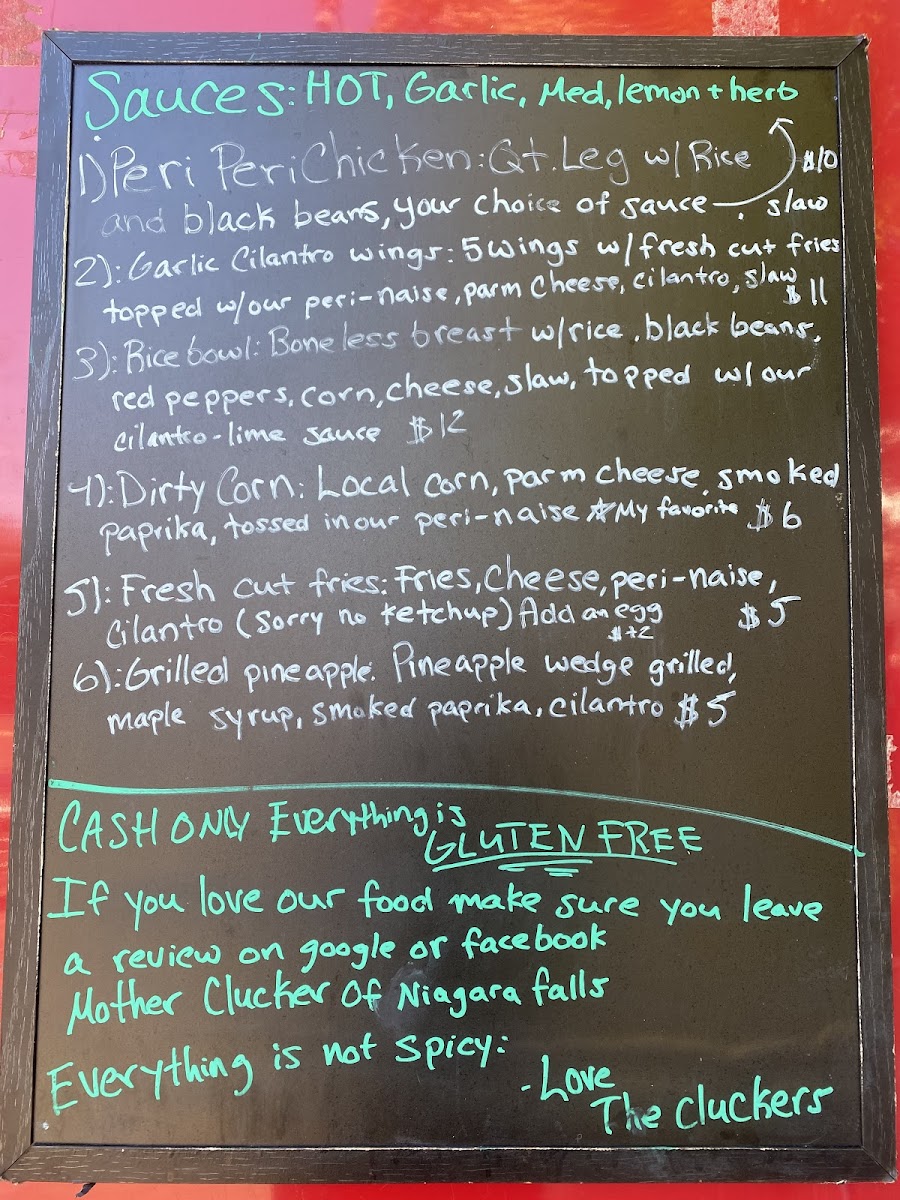 Sauces: HOT, Garlic, Med, lemon + herb
1) Peri Peri Chicken: Qt. Leg w/ Rice $10
and black beans, your choice of sauce . slaw
2): Garlic Cilantro wings: 5 wings w/ fresh cut fries
topped w/our peri-naise, parm cheese, cilantro, slaw
$11
3): Rice bowl: Boneless breast w/rice, black beans,
red peppers, corn, cheese, slaw, topped w/ our
cilantro-lime sauce $12
4): Dirty Corn: Local corn, parm cheese, smoked
paprika, tossed in our peri-naise ☆My favorite $6
5): Fresh cut fries: Fries, Cheese, peri-naise,
Cilantro (Sorry no ketchup) Add an egg $5
$+2
6): Grilled pineapple. Pineapple wedge grilled,
maple syrup, smoked paprika, cilantro $5
CASH ONLY Everything is
GLUTEN FREE
If you love our food make sure you leave
a review on google or facebook
Mother Clucker Of Niagara falls
Everything is not spicy:
-Love
The Cluckers